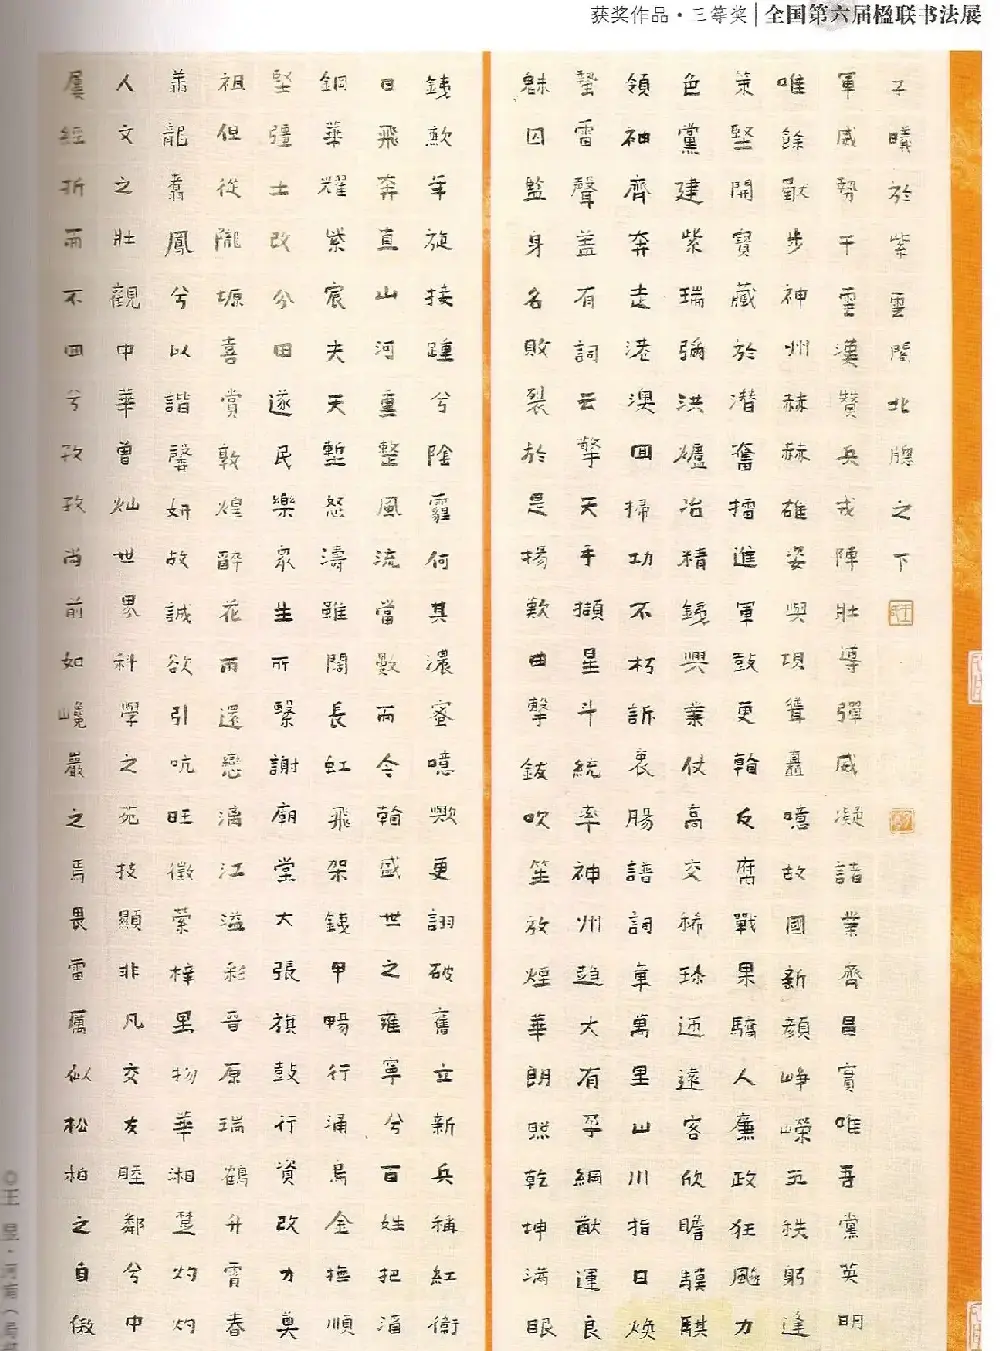 获奖作品·三等奖 | 全国第六届楹联书法展
鐵歎年旋接踵兮陰霾何其濃蜜噫歟更詡破舊立新兵稱紅衛
日飛奔直山河重整風流當數而今翰盛世之雍寧兮百姓把酒
銅華耀紫宸夫天塹怒濤雖闊長虹飛架鐵甲暢行涌烏金撫順
堅疆土改分田遂民樂眾生所繫謝廟堂大張旗鼓行資改力莫
祖但從隴塬喜賞敦煌醉花雨還戀漓江溢彩晋原瑞鶴升霄春
龍翥鳳兮以諧馨妍故誠欲引吭旺徵萦梓里物華湘楚灼灼
人文之壯觀中華曾灿世界科學之苑技顯非凡交友睦鄰兮中
屢經折而不回兮孜孜尚前如巉巖之焉畏雷厲似松柏之自傲
魅囚監身名敗裂於是揚歌曲擊鈸吹笙放煙華朗照乾坤满眼
蜚香聲盖有詞云擎天手擷星斗統率神州趨大有孚綱猷運良
領袖齊奔走港澳回掃功不朽訴衷腸譜詞章萬里山川指日焕
色黨建紫瑞彌洪爐冶精鐵興業仗高交稀珍迎遠客欣瞻驥騏
策堅開寶藏於潜奮擂進軍鼓更翰反腐戰果驕人廉政狂飈力
唯餘猷步神州赫赫雄姿與項聳矗噫故國新顏崢嶸玉秩躬逢
軍威勢干雲漢贊兵戎陣壯導彈威凝諸業齊昌實唯吾黨英明
子曦於紫雲閣北牖之下
◎王